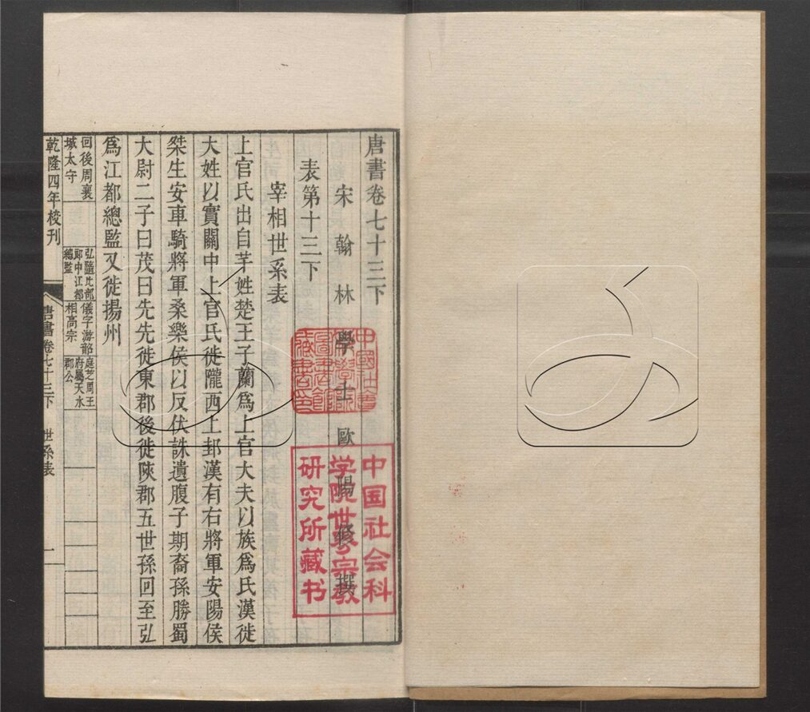 唐書卷七十三下
宋翰林學士歐陽修撰
表第十三下
宰相世系表
上官氏出自芈姓楚王子蘭為上官大夫以族為氏漢徙
大姓以實關中上官氏徙隴西上邽漢有右將軍安陽侯
桀生安車騎將軍桑樂侯以反伏誅遺腹子期裔孫勝蜀
大尉二子曰茂曰先先徙東郡後徙陝郡五世孫回至弘
為江都總監又徙揚州
回後周襄
城太守
弘隨比部
郎中江都
總監
儀字游韶
相高宗
庭芝周王
府屬天水
郡公
乾隆四年校刊
唐書卷七十三下
世系表
一
中國社會
科學院
圖書館
藏書印
中国社会科
学院世界宗教
研究所藏书